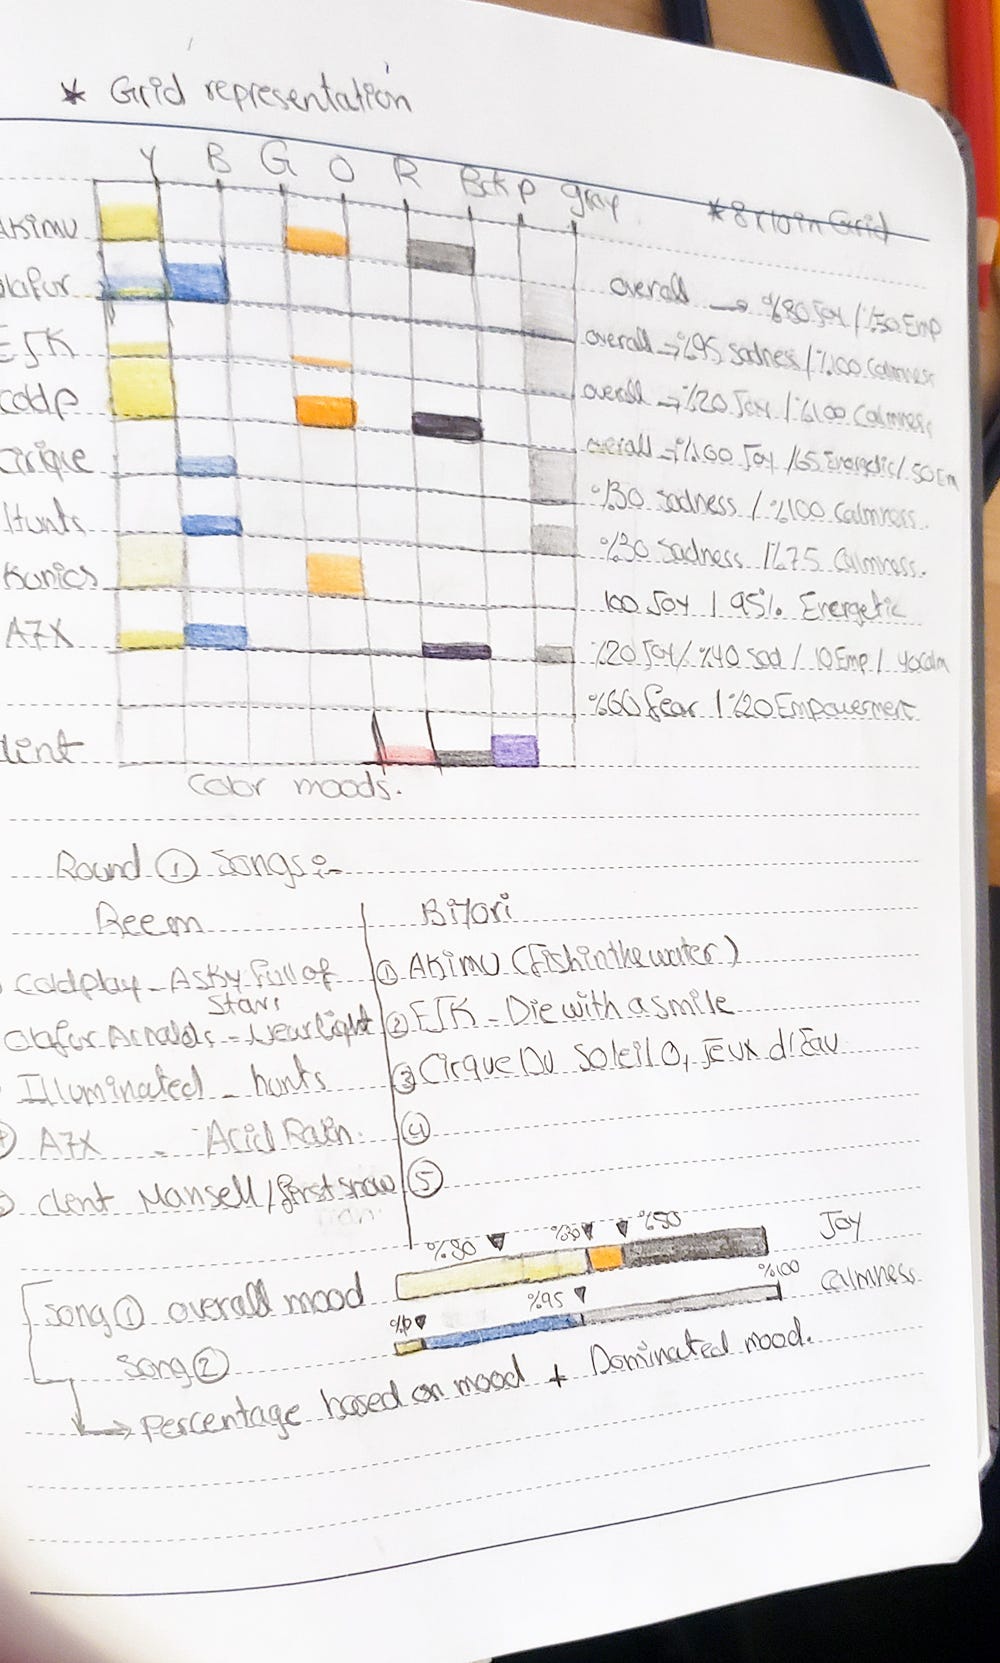 * Grid representation
Y B G O R Bck P gray
* 8x10 in Grid
Akimu
olafur
overall → %80 Joy / %50 Emp
EJK
overall → %95 sadness / %100 Calmness
coldp
overall → %20 Joy / %100 Calmness
Cirique
overall → %100 Joy / 65 Energetic / 50 Em
Hunts
%30 sadness / %100 Calmness.
Kunics
%30 sadness / %75 Calmness.
100 Joy / 95% Energetic
A7X
%20 Joy / %40 Sad / 10 Emp / 40 calm
%60 fear / %20 Empowerment
lint
Color moods.
Round ① Songs :-
Reem
Bijori
Coldplay - A sky full of
Stars
① Akimu (Fish in the water)
Olafur Arnalds - Near light
② EJK - Die with a smile
Illuminated - hunts
③ Cirque Du Soleil O, Jeux d'Eau
A7X - Acid Rain.
④
Clent Mansell / first snow
⑤
%80 %30 %50
Joy
Song ① overall mood
%95 %100
Calmness
Song ②
→ Percentage based on mood + Dominated mood.